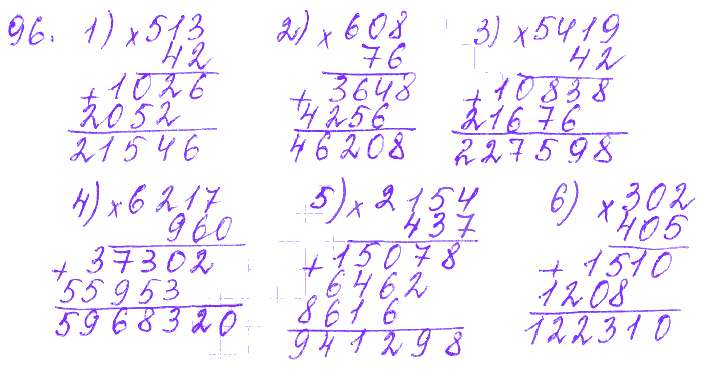 96. 1) × 513 2) × 608 3) × 5419
42 76 42
+ 1026 + 3648 + 10838
2052 4256 21676
21546 46208 227598
4) × 6217 5) × 2154 6) × 302
960 437 405
+ 37302 + 15078 + 1510
55953 6462 1208
5968320 8616 122310
941298